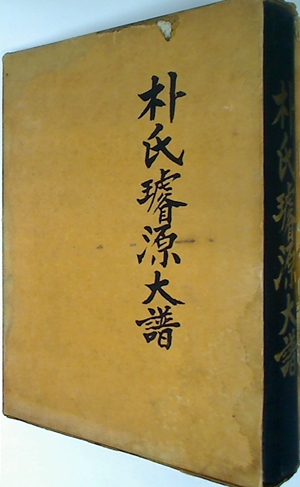 朴氏璿源大譜
朴氏璿源大譜